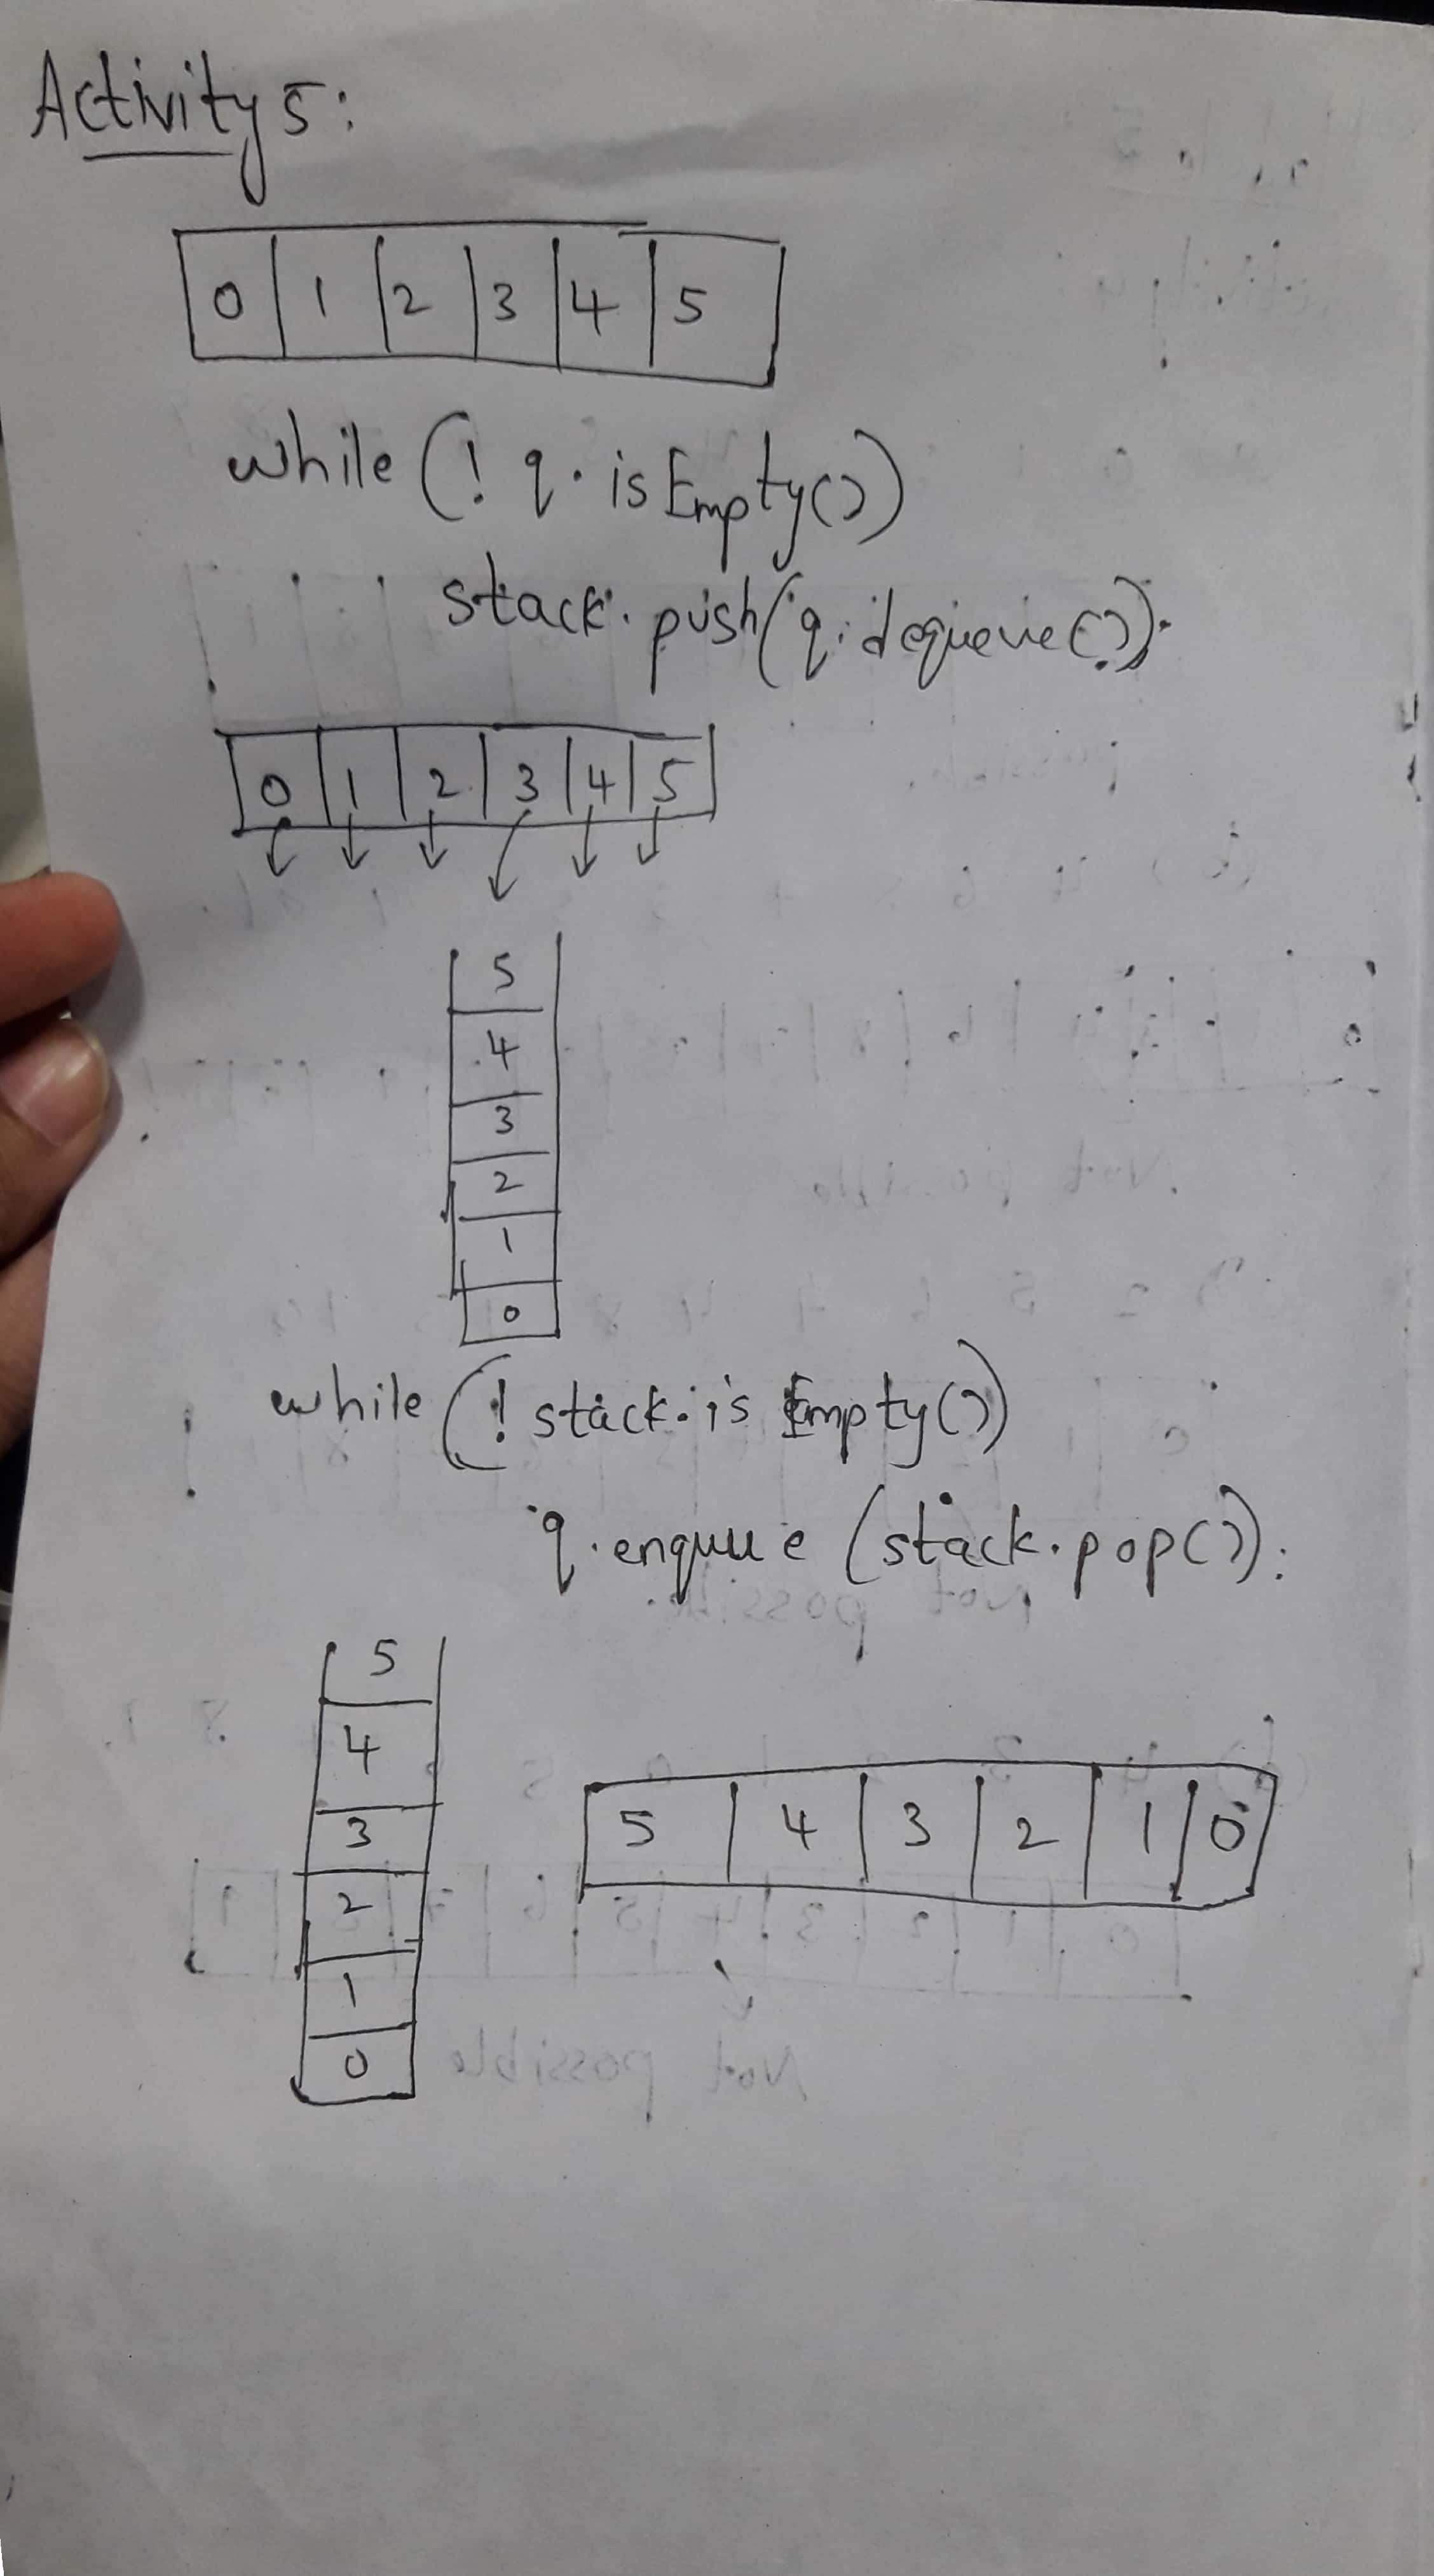 Activity 5:
0 1 2 3 4 5
while (! q. isEmpty())
stack. push(q. dequeue());
0 1 2 3 4 5
5
4
3
2
1
0
while (! stack. is Empty())
q. enqueue (stack. pop());
5
4
3
2
1
0
5 4 3 2 1 0
Not possible